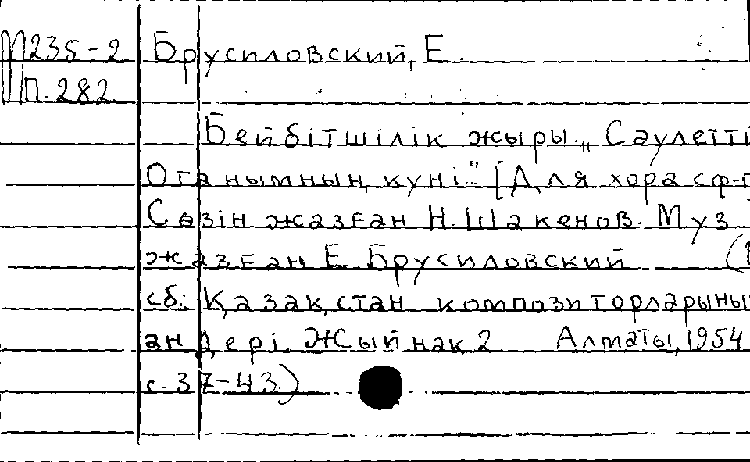 М235-2 Брусиловский, Е
П.282
Бейбітшілік жыры „Саулетті
Отанымның күні" [Для хора с ф-п
Сөзін жазған Н. Шакенов. Муз
жазған Е. Брусиловский (В
сб. Қазақстан композиторларының
әндері. Жыйнақ 2 Алматы, 1954
с. 37-43)